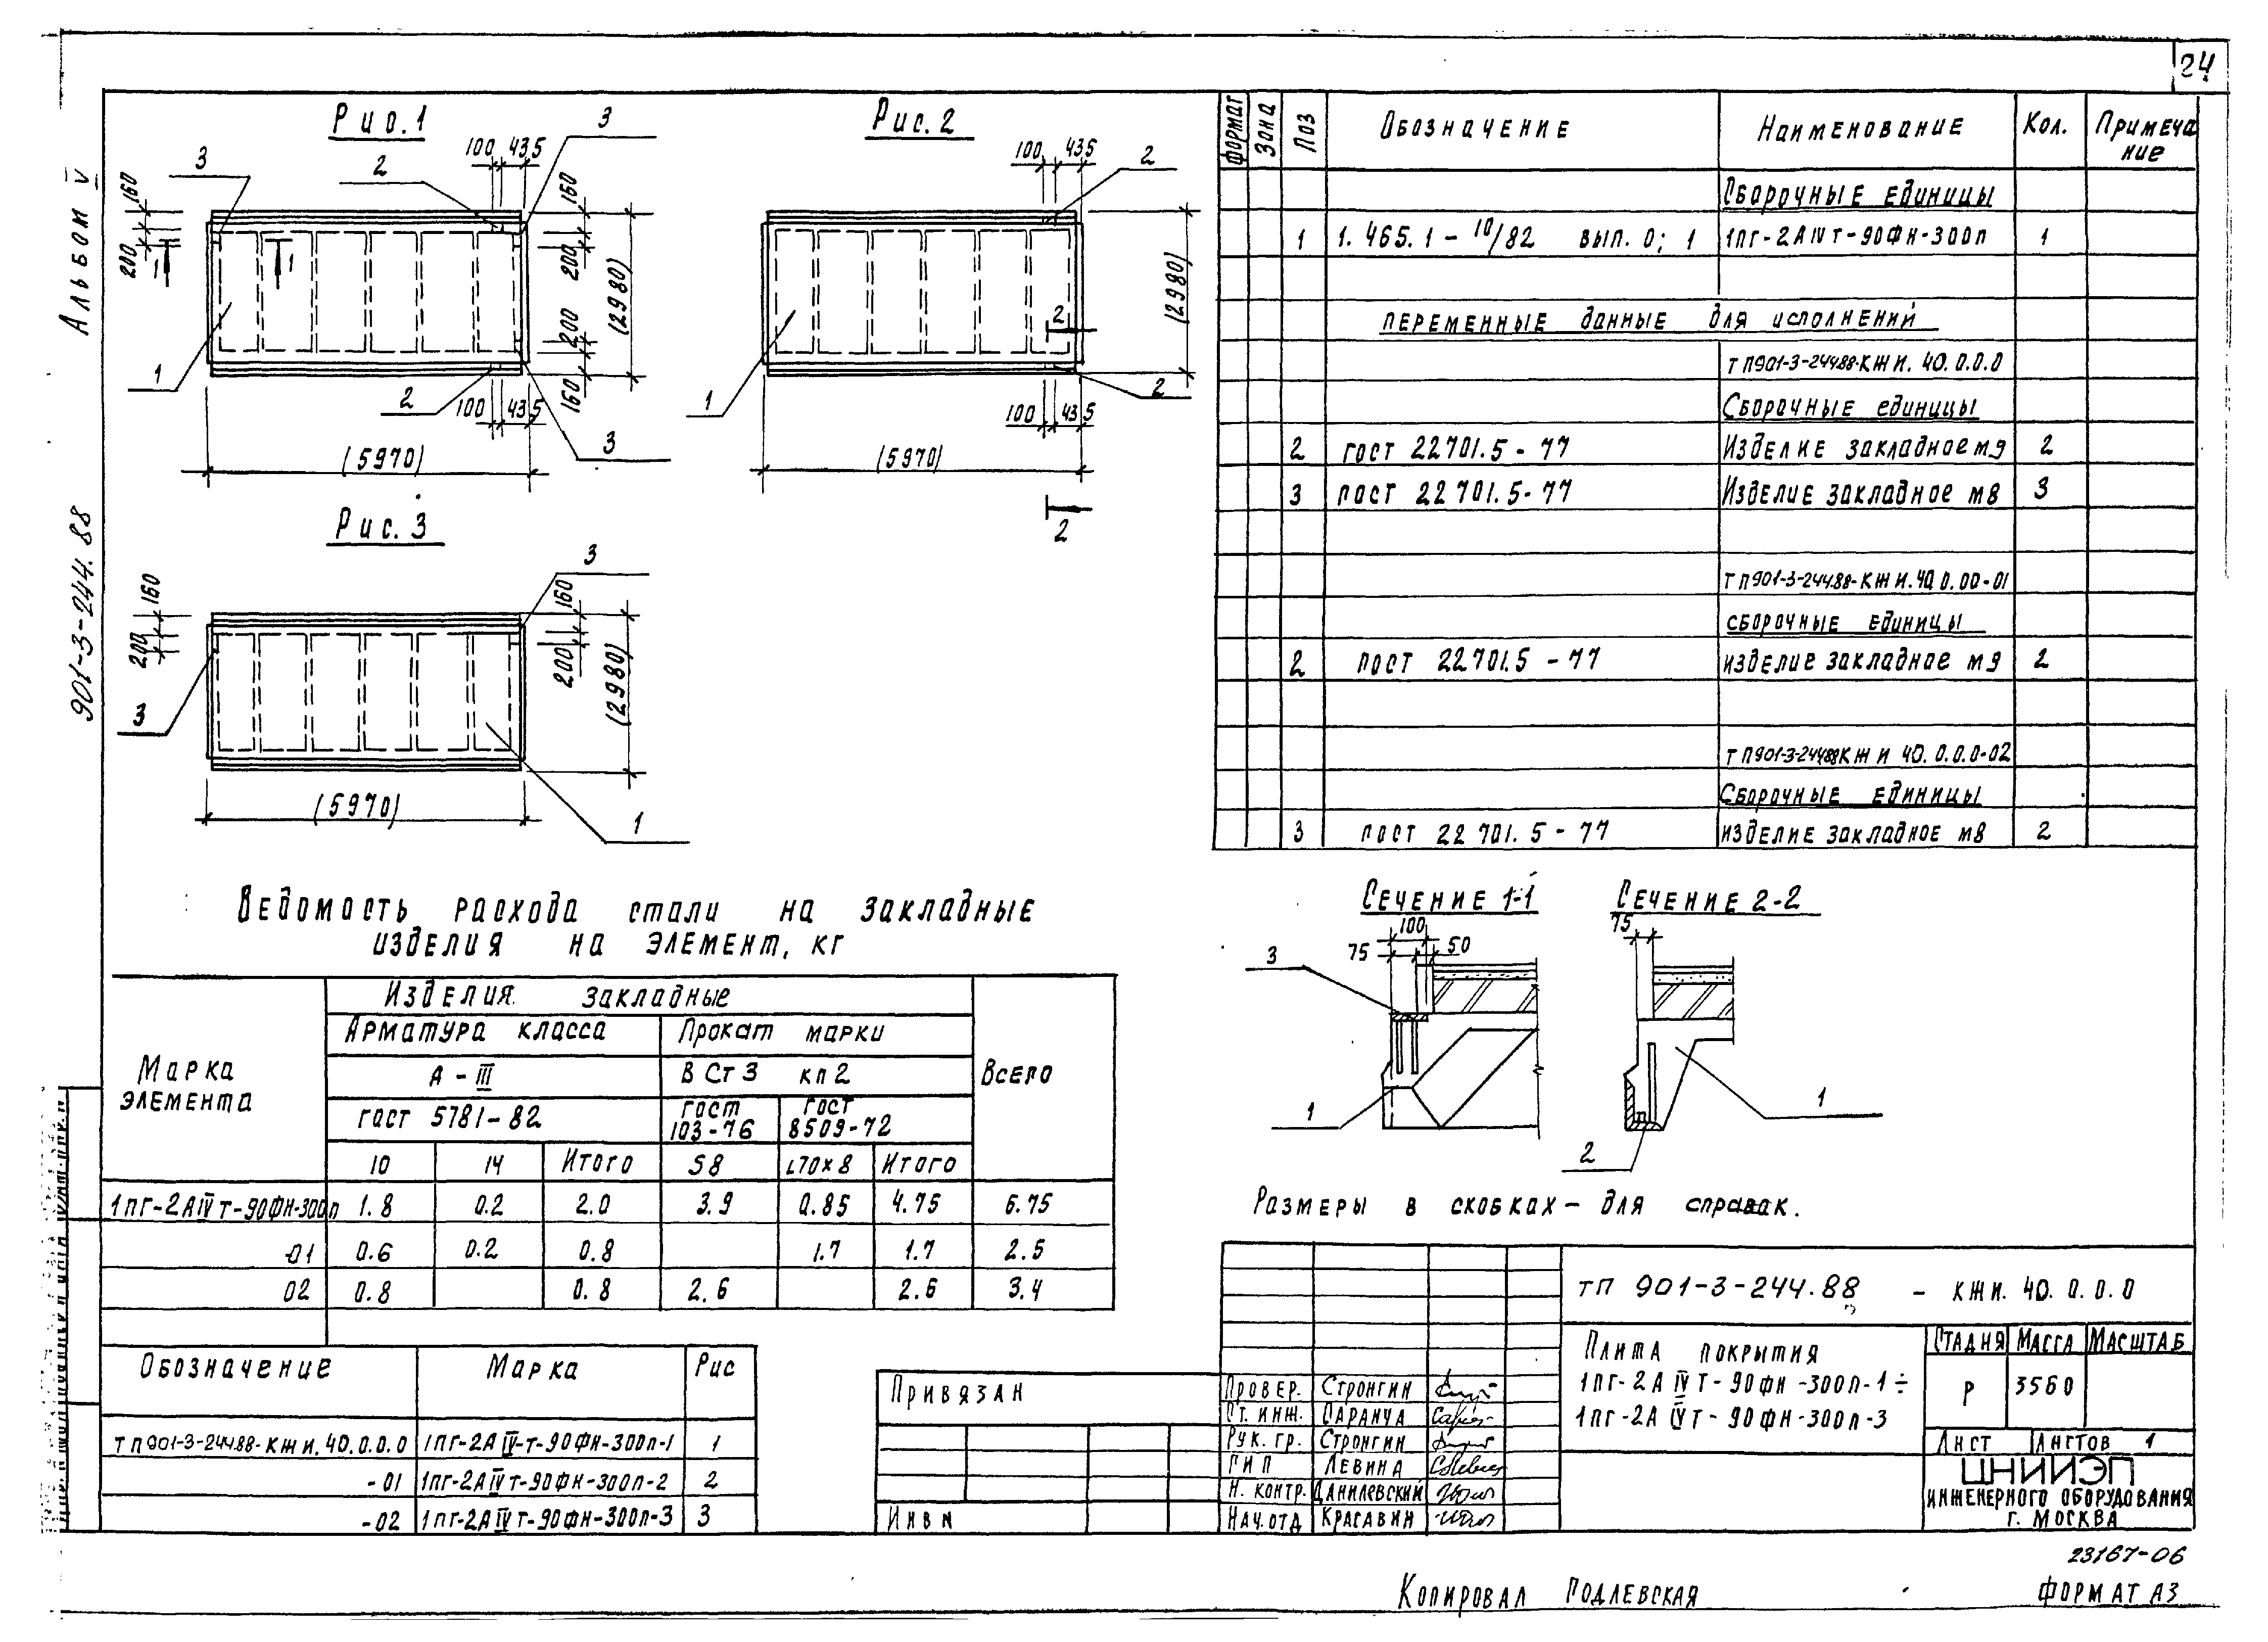 24
Альбом V
901-3-244.88
Рис.1
3
3
2
100
435
160
200
160
200
(2980)
200
160
1
1
1
2
100
435
3
(5970)
Рис.2
100
435
2
(2980)
2
1
2
100
435
(5970)
2
Рис.3
3
160
200
160
200
(2980)
3
(5970)
1
Формат
Зона
Поз
Обозначение
Наименование
Кол.
Примеча
ние
Сборочные единицы
1 1.465.1-10/82 вып.0; 1 1пг-2АIVт-90ФН-300п 1
Переменные данные для исполнений
тп901-3-244.88-КЖИ.40.0.0.0
Сборочные единицы
2 гост 22701.5-77 Изделие закладное м9 2
3 гост 22701.5-77 Изделие закладное м8 3
тп901-3-244.88-КЖИ.40.0.00-01
сборочные единицы
2 гост 22701.5-77 изделие закладное м9 2
тп901-3-24488КЖИ 40.0.0.0-02
Сборочные единицы
3 гост 22701.5-77 изделие закладное м8 2
Ведомость расхода стали на закладные
изделия на элемент, кг
Марка
элемента
Изделия закладные
Арматура класса
Прокат марки
А-III
В Ст3 кп2
Всего
гост 5781-82
гост
103-76
гост
8509-72
10 14 Итого S8 L70x8 Итого
1пг-2АIVт-90ФН-300п 1.8 0.2 2.0 3.9 0.85 4.75 6.75
-01 0.6 0.2 0.8 1.7 1.7 2.5
02 0.8 0.8 2.6 2.6 3.4
Сечение 1-1
100
75
50
3
1
Сечение 2-2
75
1
2
Размеры в скобках - для справок.
Обозначение Марка Рис
тп901-3-244.88-КЖИ.40.0.0.0 1пг-2АIV-т-90ФН-300п-1 1
-01 1пг-2АIVт-90ФН-300п-2 2
-02 1пг-2АIVт-90ФН-300п-3 3
Привязан
Инв N
тп 901-3-244.88 - КЖИ.40.0.0.0
Провер. Стронгин
Ст. инж. Саранча
Рук. гр. Стронгин
ГИП Левина
Н. контр. Данилевский
Нач.отд Красавин
Плита покрытия
1пг-2АIVт-90ФН-300п-1÷
1пг-2АIVт-90ФН-300п-3
Стадия Масса Масштаб
Р 3560
Лист Листов 1
ЦНИИЭП
инженерного оборудования
г. Москва
23167-06
Копировал Подлевская
Формат А3